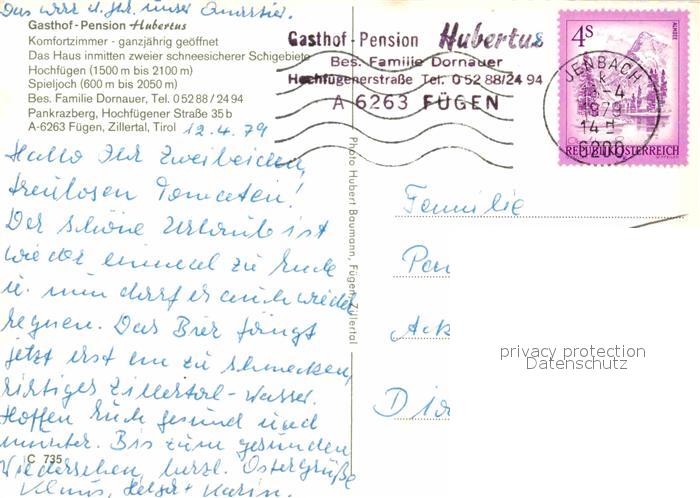 Das war u. ist unser Quartier.
Gasthof-Pension Hubertus
Komfortzimmer - ganzjährig geöffnet
Das Haus inmitten zweier schneesicherer Schigebiete
Hochfügen (1500 m bis 2100 m)
Spieljoch (600 m bis 2050 m)
Bes. Familie Dornauer, Tel. 0 52 88 / 24 94
Pankrazberg, Hochfügener Straße 35 b
A-6263 Fügen, Zillertal, Tirol
12.4.79
Hallo Ihr zwei beiden,
treulosen Tomaten!
Der schöne Urlaub ist
wieder einmal zu Ende
u. nun darf es auch wieder
regnen. Das Bier fängt
jetzt erst an zu schmecken,
richtiges Zillertal-Wasser.
Hoffen Euch gesund und
munter. Bis zum gesunden
Wiedersehen, herzl. Ostergrüße
Klaus, Helga + Karin.
C 735
Photo Hubert Baumann, Fügen, Zillertal
Gasthof-Pension Hubertus
Bes. Familie Dornauer
Hochfügenerstraße Tel. 0 52 88/24 94
A 6263 FÜGEN
4S
ALMSEE
REPUBLIK ÖSTERREICH
JENBACH
-4
1979
14
6200
Familie
Pan
Ack
Dia
privacy protection
Datenschutz